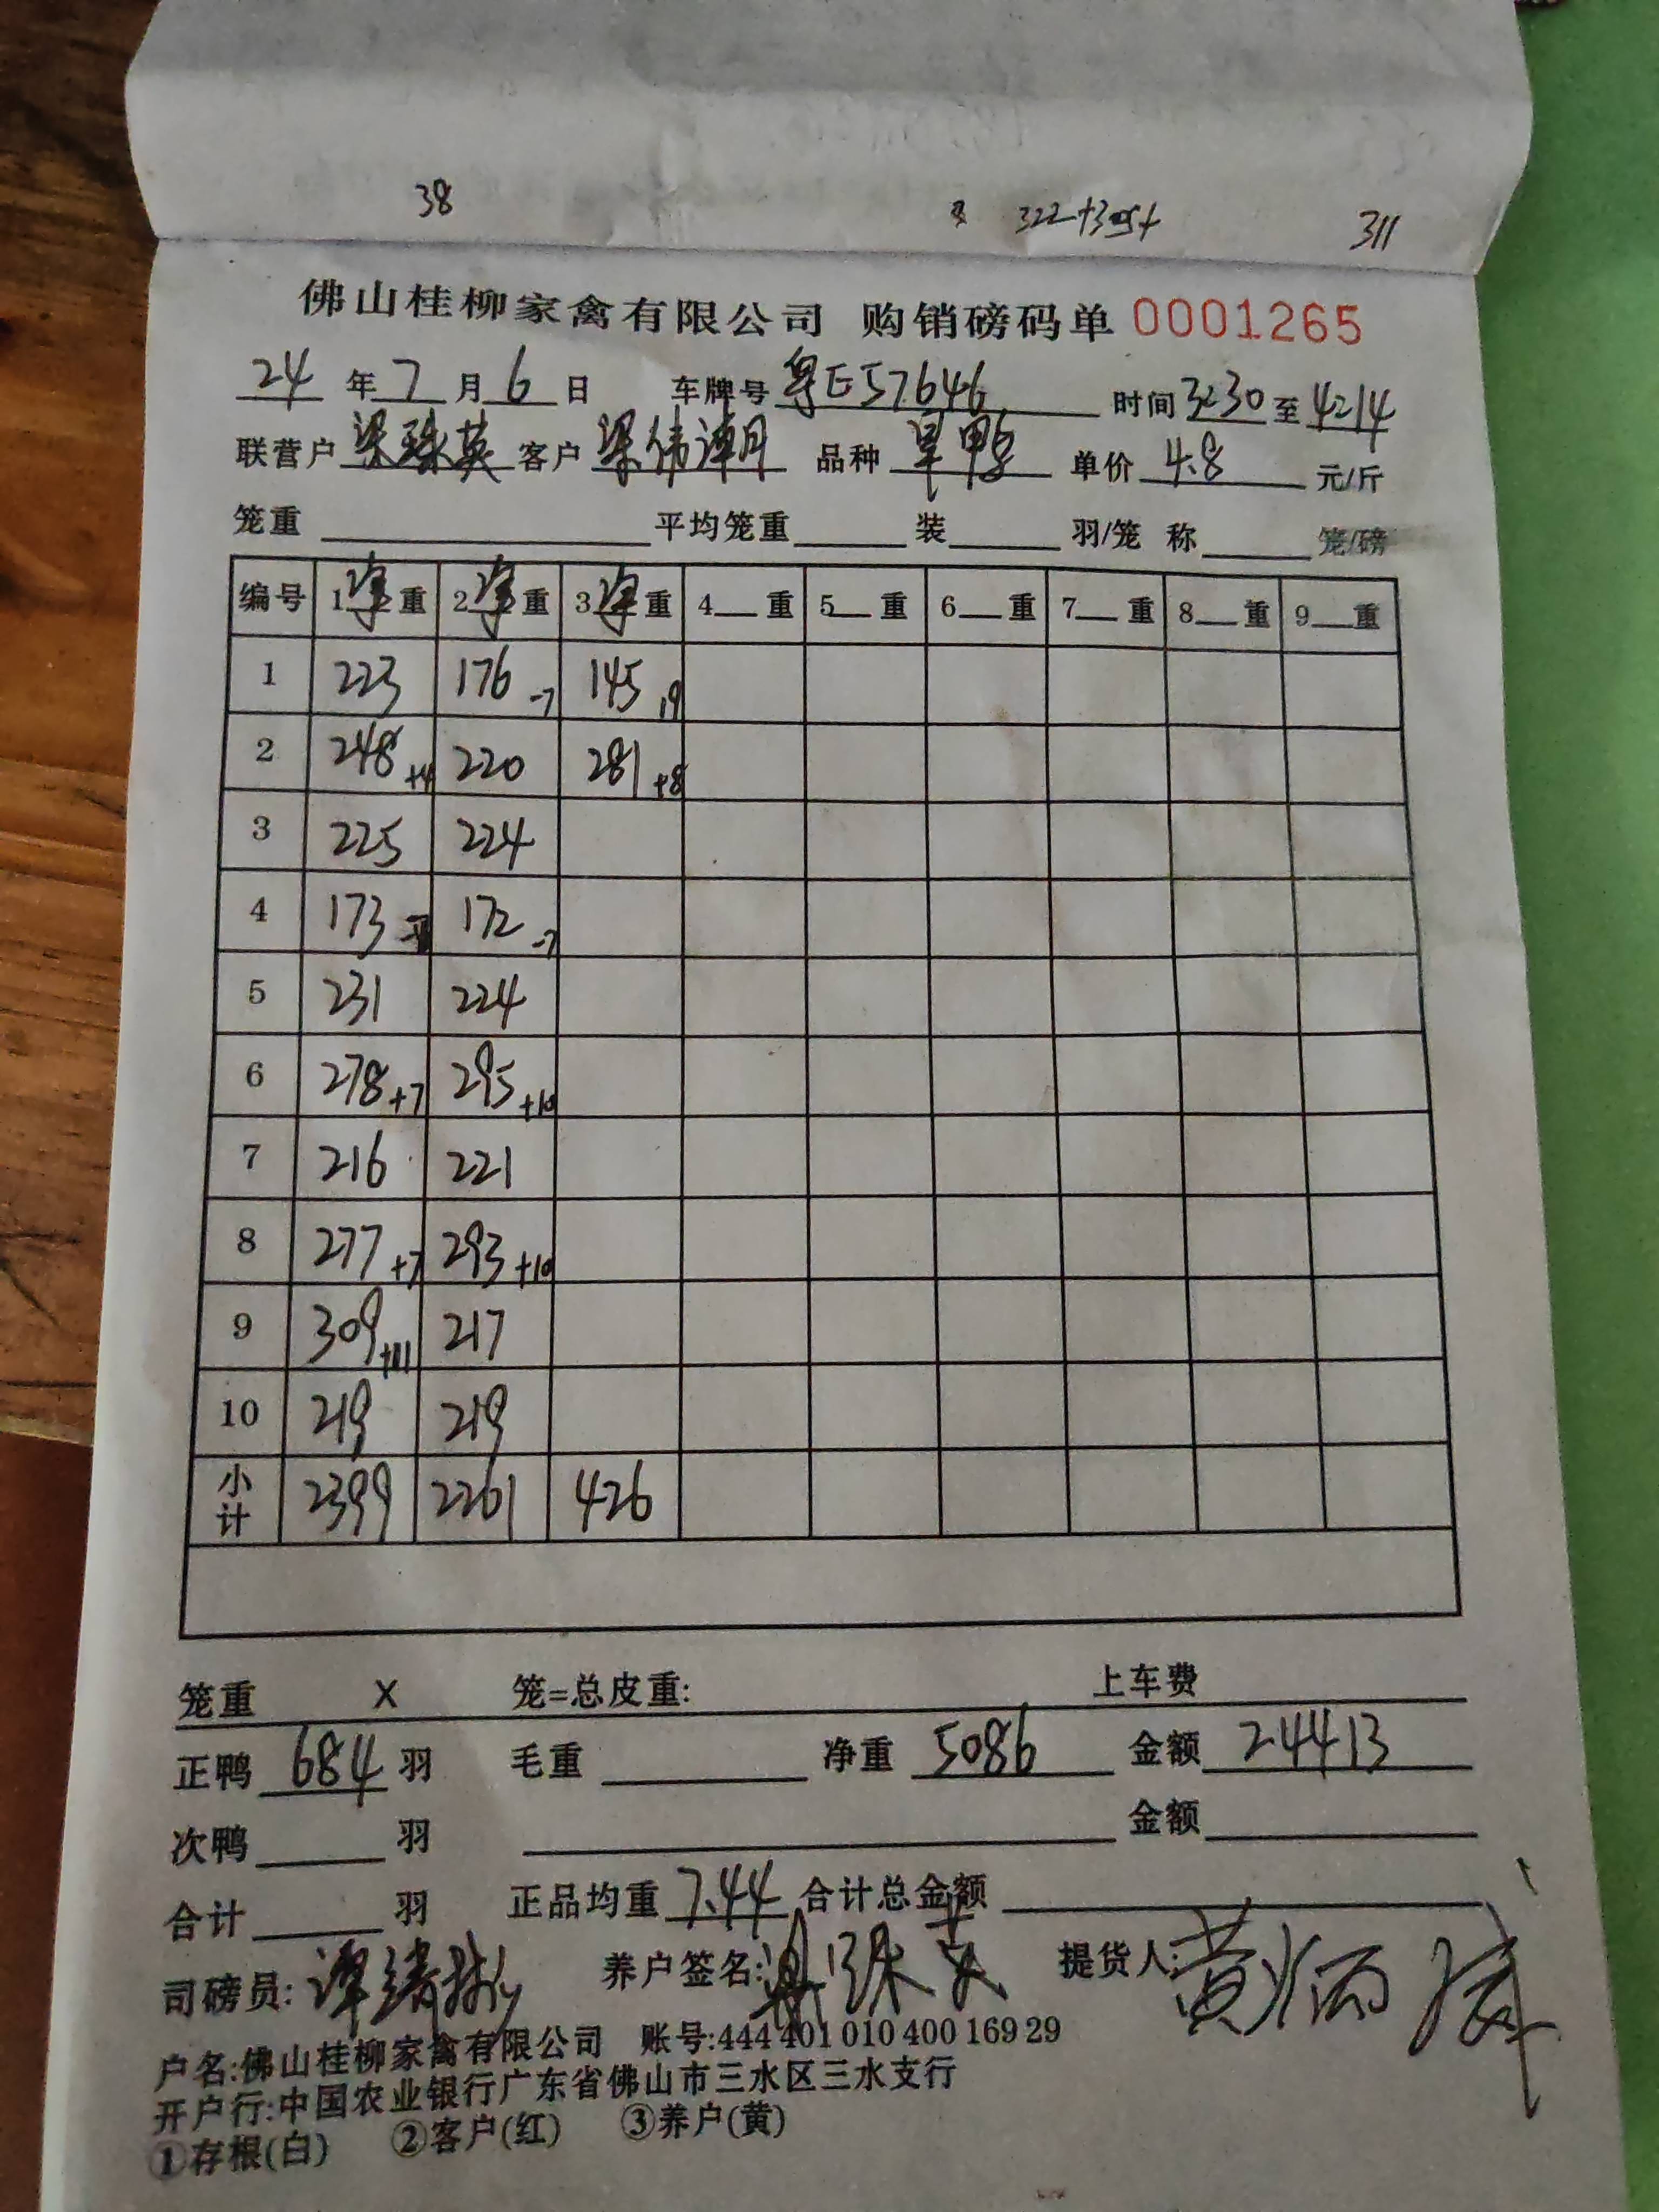 38 322+ 311
佛山桂柳家禽有限公司 购销磅码单 0001265
24 年 7 月 6 日 车牌号 粤E57646 时间 3:30 至 4:14
联营户 梁珠英 客户 梁伟谭月 品种 旱鸭 单价 4.8 元/斤
笼重 平均笼重 装 羽/笼 称 笼/磅
编号 1净重 2净重 3净重 4 重 5 重 6 重 7 重 8 重 9 重
1 223 176 -7 145 19
2 248 +4 220 281 +8
3 225 224
4 173 172 -7
5 231 224
6 278 +7 295 +10
7 216 221
8 277 +7 293 +10
9 309 +11 217
10 219 219
小计 2399 2261 426
笼重 X 笼=总皮重: 上车费
正鸭 684 羽 毛重 净重 5086 金额 24413
次鸭 羽 金额
合计 羽 正品均重 7.44 合计总金额
司磅员: 谭 养户签名: 梁珠英 提货人: 黄炳
户名:佛山桂柳家禽有限公司 账号:444 401 010 400 169 29
开户行:中国农业银行广东省佛山市三水区三水支行
①存根(白) ②客户(红) ③养户(黄)